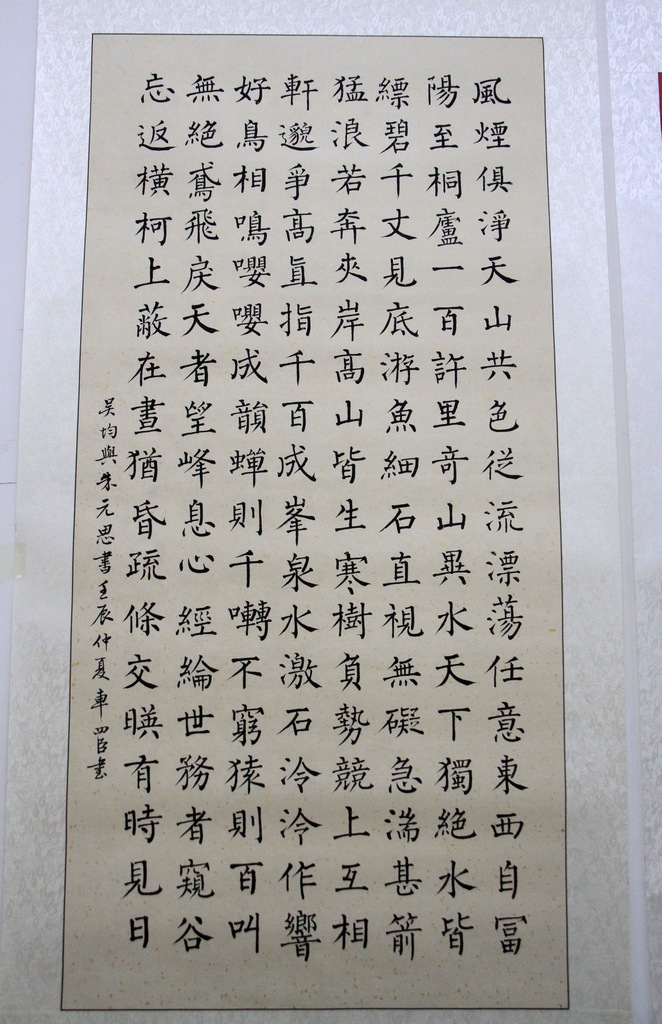 風煙俱淨天山共色從流漂蕩任意東西自冨
陽至桐廬一百許里奇山異水天下獨絕水皆
縹碧千丈見底游魚細石直視無礙急湍甚箭
猛浪若奔夾岸高山皆生寒樹負勢競上互相
軒邈爭高直指千百成峯泉水激石泠泠作響
好鳥相鳴嚶嚶成韻蟬則千囀不窮猿則百叫
無絕鳶飛戾天者望峰息心經綸世務者窺谷
忘返橫柯上蔽在晝猶昏疏條交暎有時見日
吴均與朱元思書壬辰仲夏車四臣書